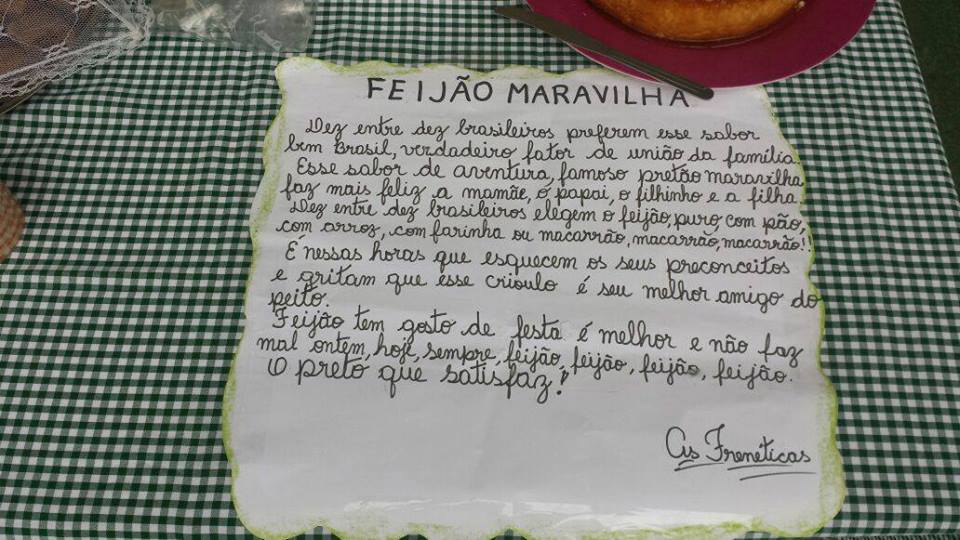 FEIJÃO MARAVILHA
Dez entre dez brasileiros preferem esse sabor
bem Brasil, verdadeiro fator de união da família.
Esse sabor de aventura, famoso pretão maravilha
faz mais feliz a mamãe, o papai, o filhinho e a filha
Dez entre dez brasileiros elegem o feijão, puro, com pão,
com arroz, com farinha ou macarrão, macarrão, macarrão!!
É nessas horas que esquecem os seus preconceitos
e gritam que esse crioulo é seu melhor amigo do
peito.
Feijão tem gosto de festa é melhor e não faz
mal ontem, hoje, sempre, feijão, feijão, feijão, feijão.
O preto que satisfaz!
As Frenéticas